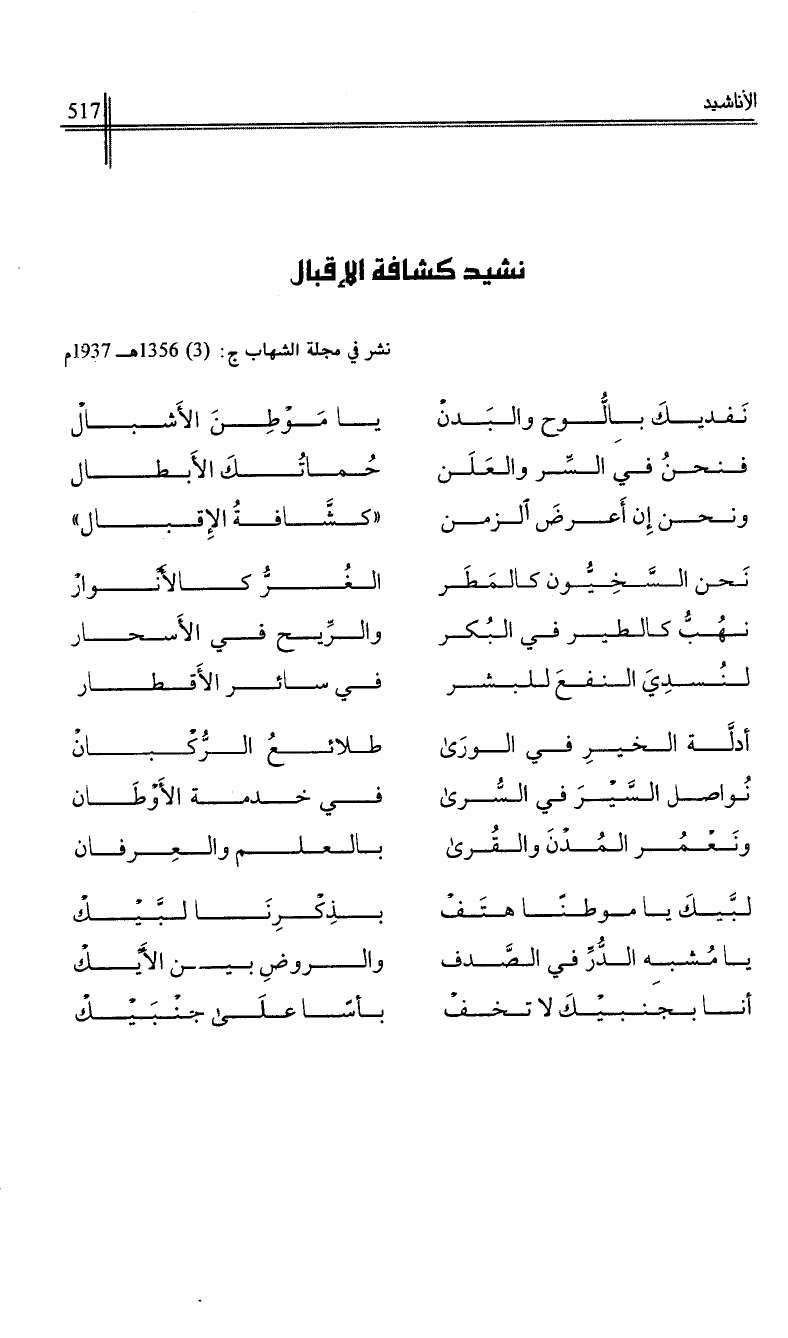 الأناشيد 517
نشيد كشافة الإقبال
نشر في مجلة الشهاب ج: (3) 1356هـ 1937م
نَفديكَ بالُّلوح والبَدنْ يا مَوْطِنَ الأَشبالْ
فنحنُ في السِّر والعَلَن حُماتُكَ الأبطال
ونحن إن أعرضَ الزمن «كشَّافةُ الإِقبال»
نَحن السَّخِيُّون كالمَطَر الغُرُّ كالأَنْوارْ
نهُبُّ كالطير في البُكر والرِّيح في الأَسحار
لنُسدِيَ النفعَ للبشر في سائر الأَقطار
أدلَّة الخيرِ في الورَىٰ طلائعُ الرُّكْبانْ
نُواصل السَّيْرَ في السُّرىٰ في خدمة الأَوْطَان
ونَعْمُر المُدْنَ والقُرىٰ بالعلم والعِرفان
لبَّيكَ يا موطنًا هتَفْ بذِكْرِنَا لبَّيْكْ
يا مُشبه الدُّرِّ في الصَّدف والروضِ بين الأَيْك
أنا بجنبيْكَ لا تخفْ بأسًا علَىٰ جنْبَيْكْ